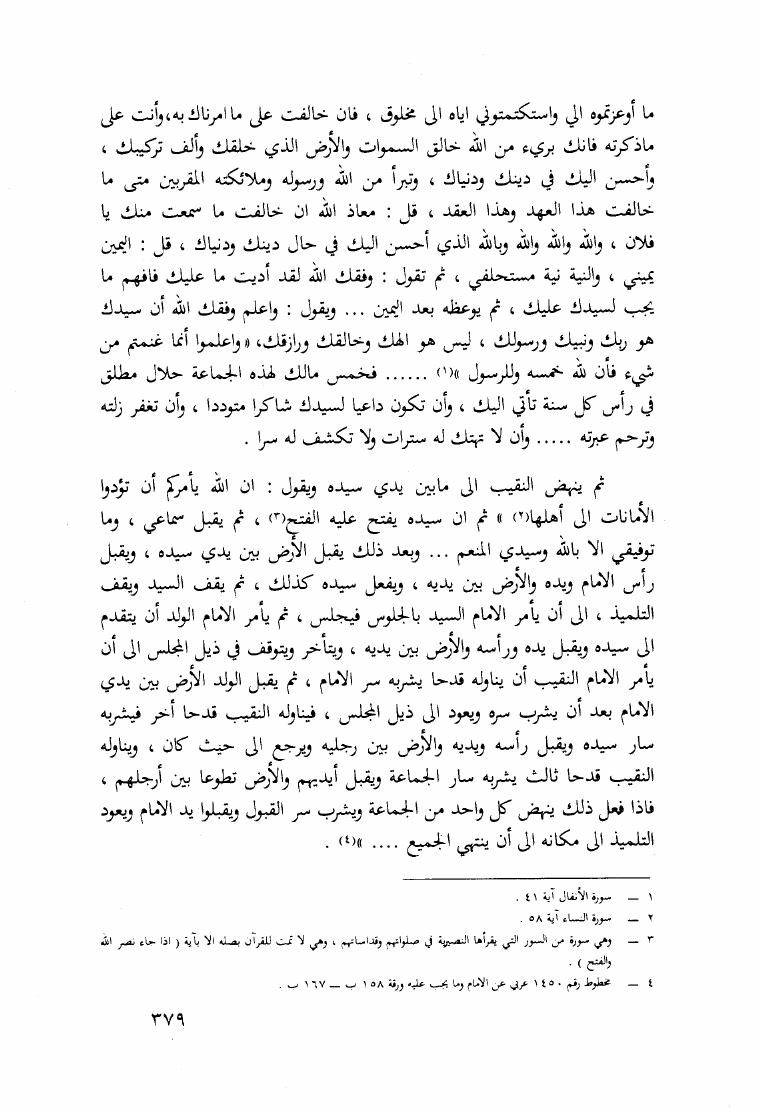 ما أوعزتموه الي واستكتمتوني اياه الى مخلوق ، فان خالفت على ما امرناك به،وأنت على
ماذكرته فانك بريء من الله خالق السموات والأرض الذي خلقك وألف تركيبك ،
وأحسن اليك في دينك ودنياك ، وتبرأ من الله ورسوله وملائكته المقربين متى ما
خالفت هذا العهد وهذا العقد ، قل : معاذ الله ان خالفت ما سمعت منك يا
فلان ، والله والله والله وبالله الذي أحسن اليك في حال دينك ودنياك ، قل : اليمين
يميني ، والنية نية مستحلفي ، ثم تقول : وفقك الله لقد أديت ما عليك فافهم ما
يجب لسيدك عليك ، ثم يوعظه بعد اليمين ... ويقول : واعلم وفقك الله أن سيدك
هو ربك ونبيك ورسولك ، ليس هو الهك وخالقك ورازقك، « واعلموا أنما غنمتم من
شيء فأن لله خمسه وللرسول »(١) ...... فخمس مالك لهذه الجماعة حلال مطلق
في رأس كل سنة تأتي اليك ، وأن تكون داعيا لسيدك شاكرا متوددا ، وأن تغفر زلته
وترحم عبرته ..... وأن لا تهتك له سترات ولا تكشف له سرا .
ثم ينهض النقيب الى مابين يدي سيده ويقول : ان الله يأمركم أن تؤدوا
الأمانات الى أهلها(٢) » ثم ان سيده يفتح عليه الفتح(٣) ، ثم يقبل سماعي ، وما
توفيقي الا بالله وسيدي المنعم ... وبعد ذلك يقبل الأرض بين يدي سيده ، ويقبل
رأس الامام ويده والأرض بين يديه ، ويفعل سيده كذلك ، ثم يقف السيد ويقف
التلميذ ، الى أن يأمر الامام السيد بالجلوس فيجلس ، ثم يأمر الامام الولد أن يتقدم
الى سيده ويقبل يده ورأسه والأرض بين يديه ، ويتأخر ويتوقف في ذيل المجلس الى أن
يأمر الامام النقيب أن يناوله قدحا يشربه سر الامام ، ثم يقبل الولد الأرض بين يدي
الامام بعد أن يشرب سره ويعود الى ذيل المجلس ، فيناوله النقيب قدحا أخر فيشربه
سار سيده ويقبل رأسه ويديه والأرض بين رجليه ويرجع الى حيث كان ، ويناوله
النقيب قدحا ثالث يشربه سار الجماعة ويقبل أيديهم والأرض تطوعا بين أرجلهم ،
فاذا فعل ذلك ينهض كل واحد من الجماعة ويشرب سر القبول ويقبلوا يد الامام ويعود
التلميذ الى مكانه الى أن ينتهي الجميع .... »(٤) .
١ — سورة الأنفال آية ٤١ .
٢ — سورة النساء آية ٥٨ .
٣ — وهي سورة من السور التي يقرأها النصيرية في صلواتهم وقداساتهم ، وهي لا تمت للقرآن بصله الا بآية ( اذا جاء نصر الله
والفتح ) .
٤ — مخطوط رقم ١٤٥٠ عربي عن الامام وما يجب عليه ورقة ١٥٨ ب — ١٦٧ ب .
٣٧٩